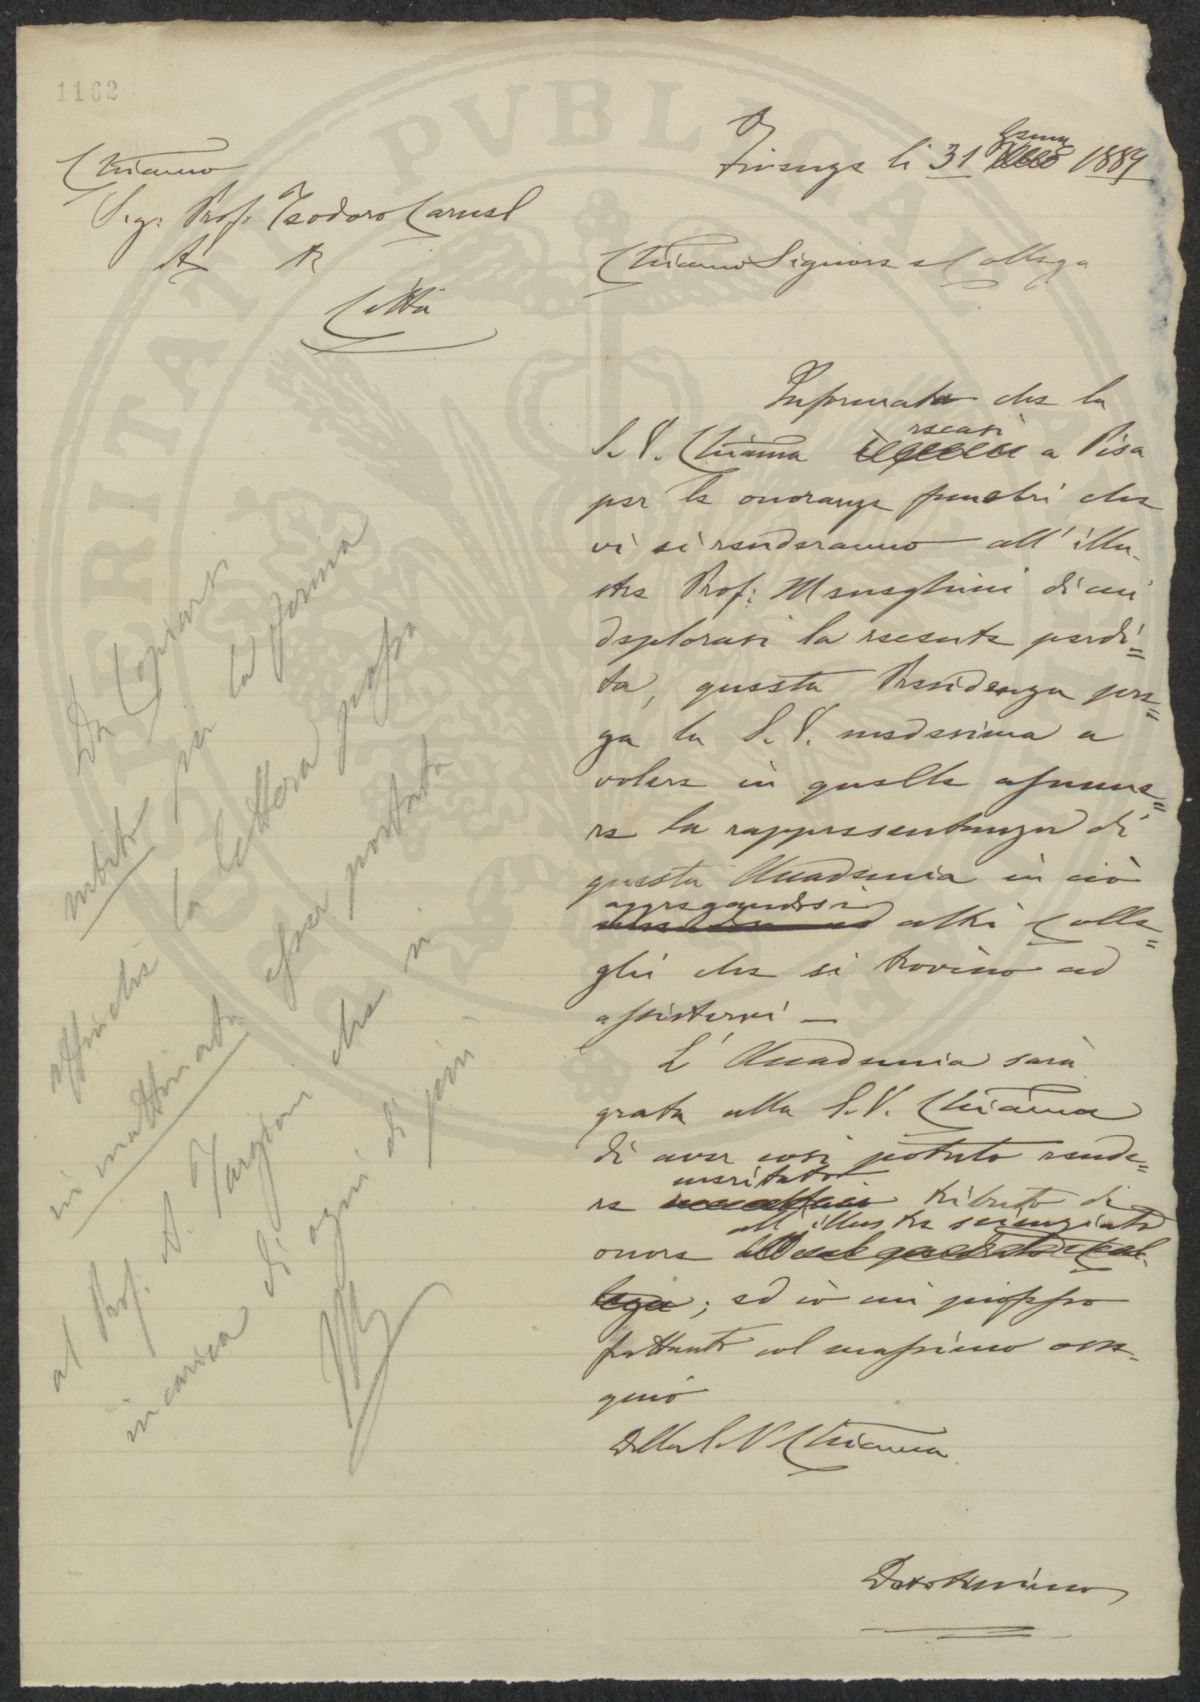 1162
Firenze li 31 Genn 1889
Chiarmo
Sig: Prof. Teodoro Caruel
A R
Città
Chiarmo Signore e Collega
Informato che la
S. V. Chiarma recasi a Pisa
per le onoranze funebri che
vi si renderanno all'illu-
stre Prof: Meneghini di cui
deplorasi la recente perdi=
ta, questa Presidenza pre=
ga la S. V. medesima a
volere in quelle assume=
re la rappresentanza di
questa Accademia in ciò
aggregandosi altri Colle=
ghi che si trovino ad
assistervi —
L'Accademia sarà
grata alla S. V. Chiarma
di aver così potuto rende=
re meritato tributo di
onore all'illustre scienziato
; ed io mi professo
frattanto col massimo osse-
quio
Della S. V. Chiarma
Devotissimo
Da Copiarsi
subito per la forma
affinchè la lettera possa
in mattinata esser portata
al Prof. A. Targioni che si
incarica di ogni di più